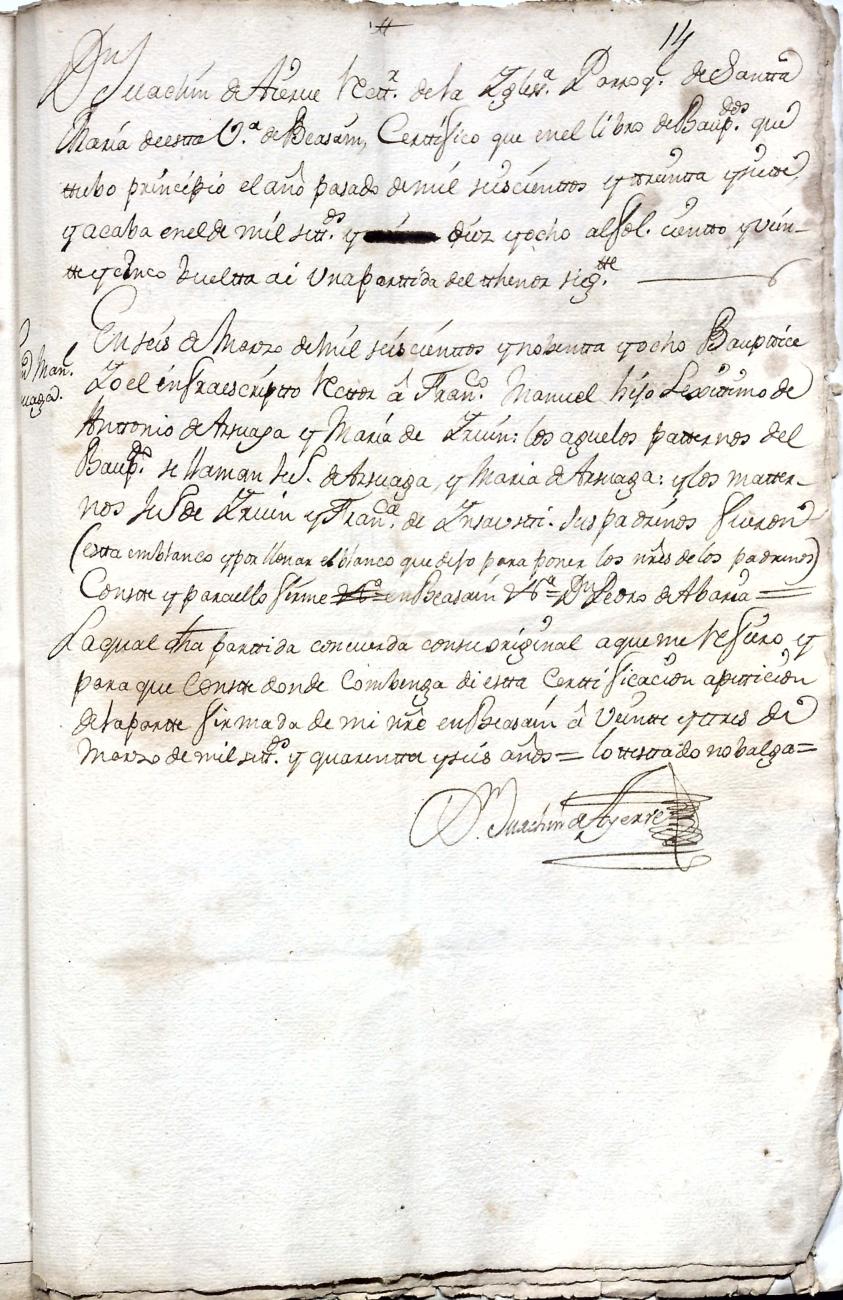 14
Dn Juachin de Aierve Rectt.r de la Igless.a Parroq.l de Santta
María de estta V.a de Beasain, Certtifico que en el libro de Baup.dos que
ttubo principio el año pasado de mil seiscienttos y ttreintta y siette
y acaba en el de mil sett.dos y diez y ocho al fol. cientto y vein-
tte y cinco bueltta ai una parttida del tthenor sig.tte
n Man.l
uaga.
En seis de Marzo de mil seiscienttos y nobentta y ocho Baupttice
Io el infraescriptto Recttor â Fran.co Manuel hijo Lexittimo de
Anttonio de Arsuaga y María de Irvin: los aguelos patternos del
Baup.do se llaman Ju.s de Arsuaga, y Maria de Arsuaga: y los matter-
nos Ju.s de Irvin y Fran.ca de Insausti. Sus padrinos fueron
(estta em blanco y por llenar el blanco que dejo para poner los nres de los padrinos)
Constte y para ello firme en Beasain Dn Pedro de Abaria
La qual dha parttida concuerda con su original a que me refiero y
para que constte donde combenga di estta certtificacion a pitticion
de la partte firmada de mi nre en Beasain â veintte y ttres de
Marzo de mil sett.dos y quarentta y seis años = lo ttesttado no balga =
Dn Juachin de Ayerve